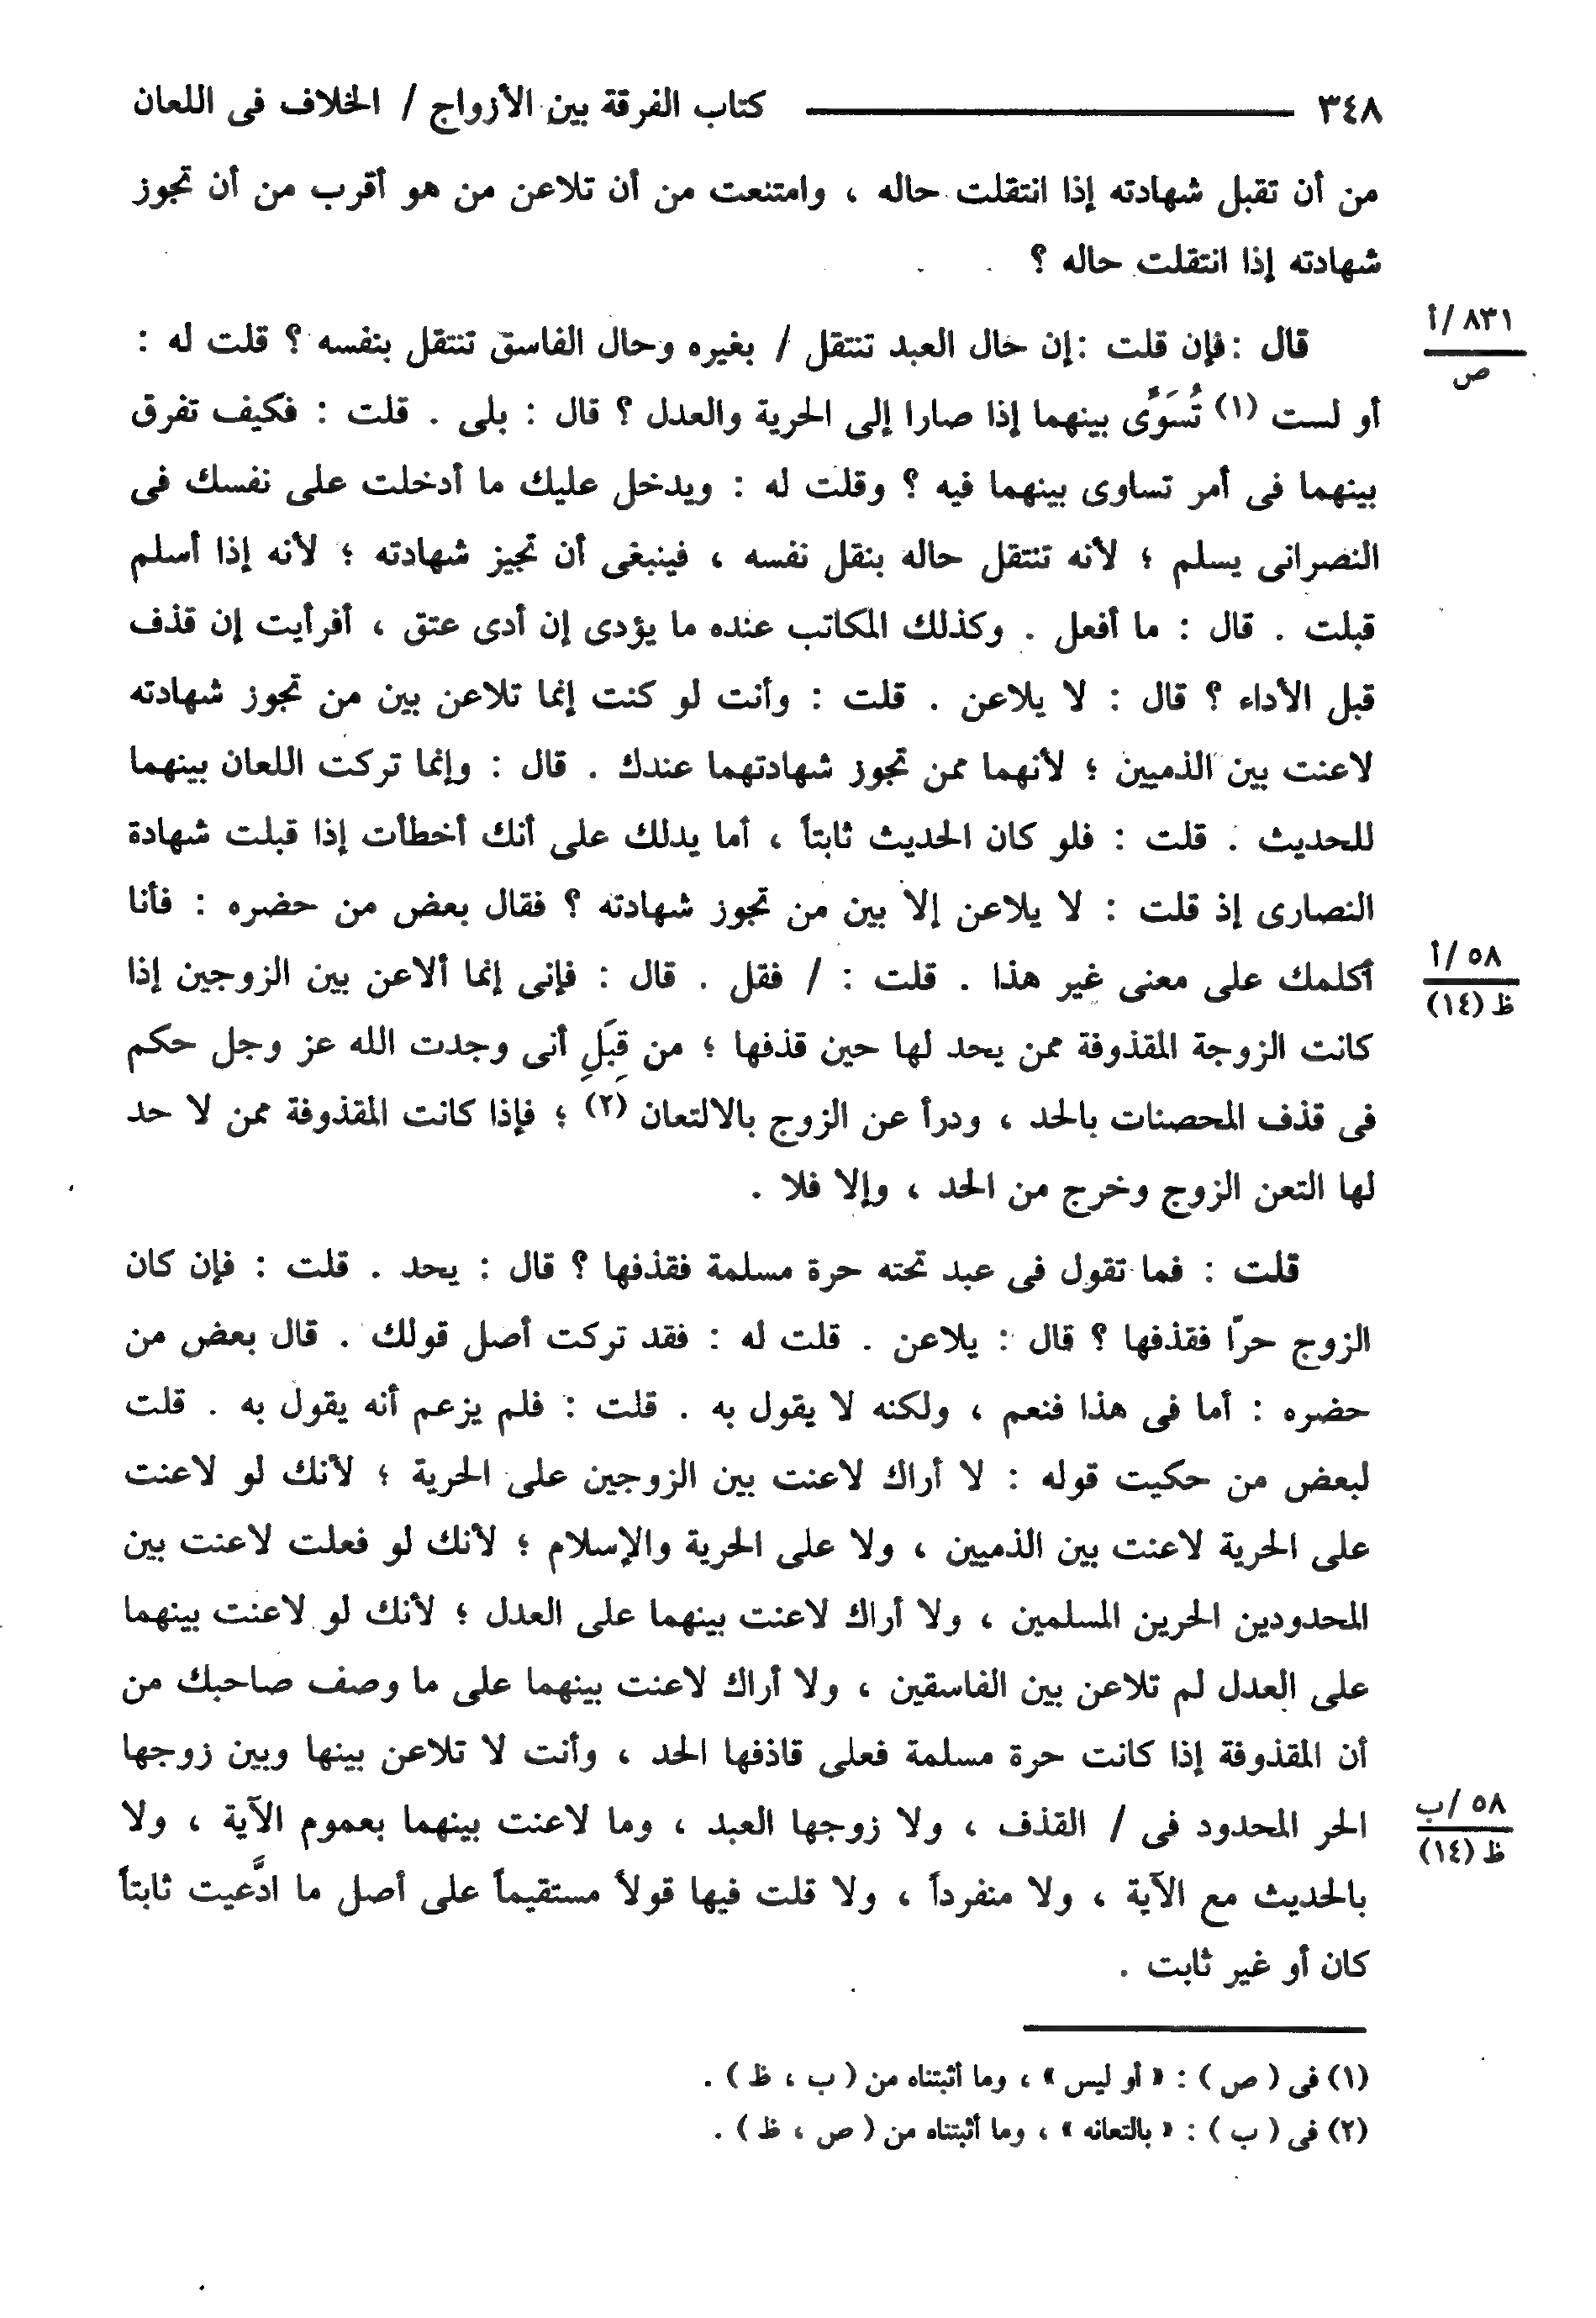 ٣٤٨ كتاب الفرقة بين الأزواج / الخلاف فى اللعان
من أن تقبل شهادته إذا انتقلت حاله ، وامتنعت من أن تلاعن من هو أقرب من أن تجوز
شهادته إذا انتقلت حاله ؟
٨٣١ /أ
ص
قال : فإن قلت : إن حال العبد تنتقل / بغيره وحال الفاسق تنتقل بنفسه ؟ قلت له :
أو لست (١) تُسَوِّى بينهما إذا صارا إلى الحرية والعدل ؟ قال : بلى . قلت : فكيف تفرق
بينهما فى أمر تساوى بينهما فيه ؟ وقلت له : ويدخل عليك ما أدخلت على نفسك فى
النصرانى يسلم ؛ لأنه تنتقل حاله بنقل نفسه ، فينبغى أن تجيز شهادته ؛ لأنه إذا أسلم
قبلت . قال : ما أفعل . وكذلك المكاتب عنده ما يؤدى إن أدى عتق ، أفرأيت إن قذف
قبل الأداء ؟ قال : لا يلاعن . قلت : وأنت لو كنت إنما تلاعن بين من تجوز شهادته
لاعنت بين الذميين ؛ لأنهما ممن تجوز شهادتهما عندك . قال : وإنما تركت اللعان بينهما
للحديث . قلت : فلو كان الحديث ثابتاً ، أما يدلك على أنك أخطأت إذا قبلت شهادة
النصارى إذ قلت : لا يلاعن إلا بين من تجوز شهادته ؟ فقال بعض من حضره : فأنا
أكلمك على معنى غير هذا . قلت : / فقل . قال : فإنى إنما ألاعن بين الزوجين إذا
٥٨ /أ
ظ (١٤)
كانت الزوجة المقذوفة ممن يحد لها حين قذفها ؛ من قِبَلِ أنى وجدت الله عز وجل حكم
فى قذف المحصنات بالحد ، ودرأ عن الزوج بالالتعان (٢) ؛ فإذا كانت المقذوفة ممن لا حد
لها التعن الزوج وخرج من الحد ، وإلا فلا .
قلت : فما تقول فى عبد تحته حرة مسلمة فقذفها ؟ قال : يحد . قلت : فإن كان
الزوج حرّا فقذفها ؟ قال : يلاعن . قلت له : فقد تركت أصل قولك . قال بعض من
حضره : أما فى هذا فنعم ، ولكنه لا يقول به . قلت : فلم يزعم أنه يقول به . قلت
لبعض من حكيت قوله : لا أراك لاعنت بين الزوجين على الحرية ؛ لأنك لو لاعنت
على الحرية لاعنت بين الذميين ، ولا على الحرية والإسلام ؛ لأنك لو فعلت لاعنت بين
المحدودين الحرين المسلمين ، ولا أراك لاعنت بينهما على العدل ؛ لأنك لو لاعنت بينهما
على العدل لم تلاعن بين الفاسقين ، ولا أراك لاعنت بينهما على ما وصف صاحبك من
أن المقذوفة إذا كانت حرة مسلمة فعلى قاذفها الحد ، وأنت لا تلاعن بينها وبين زوجها
الحر المحدود فى / القذف ، ولا زوجها العبد ، وما لاعنت بينهما بعموم الآية ، ولا
٥٨ /ب
ظ (١٤)
بالحديث مع الآية ، ولا منفرداً ، ولا قلت فيها قولاً مستقيماً على أصل ما ادَّعيت ثابتاً
كان أو غير ثابت .
(١) فى ( ص ) : « أو ليس » ، وما أثبتناه من ( ب ، ظ ) .
(٢) فى ( ب ) : « بالتعانه » ، وما أثبتناه من ( ص ، ظ ) .